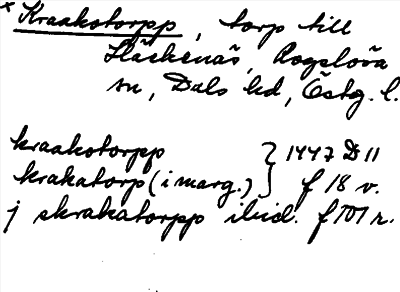 × Kraakotorpp, torp till
Häckenäs, Rogslösa
sn, Dals hd, Östg. l.
kraakotorpp } 1447 D 11
krakatorp (i marg.) } f 18 v.
j skrakatorpp ibid. f 101 r.